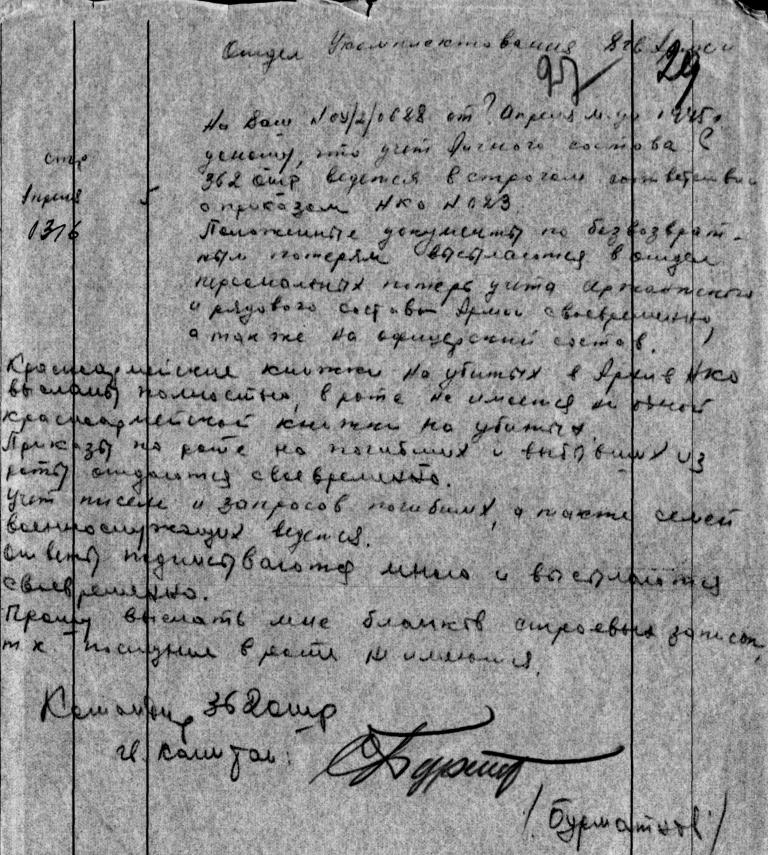 Отдел Укомплектования 8 гв Армии
97 29
На Ваш N 04/2/0628 от ? Апреля 1945
что учет личного состава
362 отр ведется в строгом соответствии
с приказом НКО N 023.
стр
Апреля 5
1316
Положенные документы по безвозврат-
ным потерям высылаются в отдел
персональных потерь учета сержантского
и рядового состава Армии своевременно,
а так же на офицерский состав.
Красноармейские книжки на убитых в Архив НКО
высланы полностью, в роте не имеется ни одной
красноармейской книжки на убитых.
Приказы по роте на погибших и выбывших из
роты отдаются своевременно.
Учет писем и запросов погибших, а также семей
военнослужащих ведется.
Ответы подписываются мною и высылаются
своевременно.
Прошу выслать мне бланков строевых записок,
т к последних в роте не имеются.
Командир 362 отр
гв. капитан:
/Бурматнов/